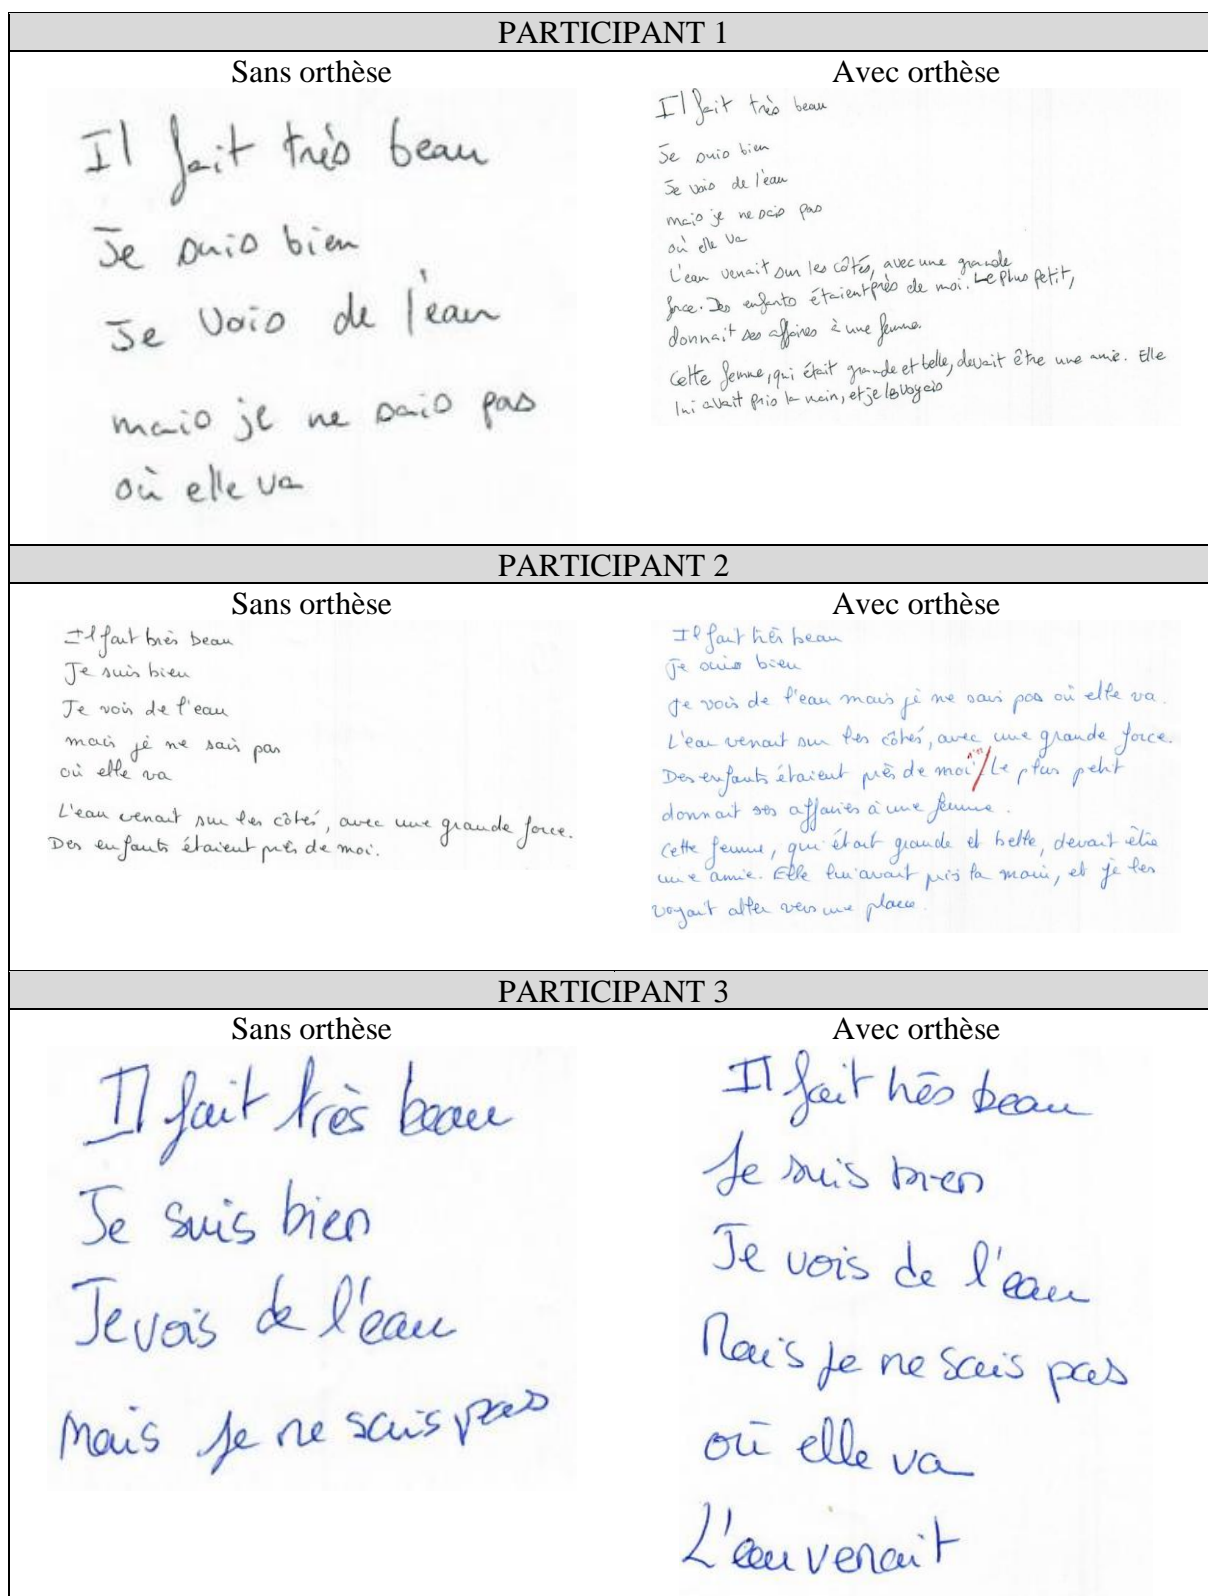 PARTICIPANT 1
Sans orthèse
Il fait très beau
Je suis bien
Je vois de l'eau
mais je ne sais pas
où elle va
Avec orthèse
Il fait très beau
Je suis bien
Je vois de l'eau
mais je ne sais pas
où elle va
L'eau venait sur les côtés, avec une grande
force. Des enfants étaient près de moi. Le plus petit,
donnait ses affaires à une femme.
Cette femme, qui était grande et belle, devait être une amie. Elle
lui avait pris la main, et je les voyais
PARTICIPANT 2
Sans orthèse
Il fait très beau
Je suis bien
Je vois de l'eau
mais je ne sais pas
où elle va
L'eau venait sur les côtés, avec une grande force.
Des enfants étaient près de moi.
Avec orthèse
Il fait très beau
Je suis bien
Je vois de l'eau mais je ne sais pas où elle va.
L'eau venait sur les côtés, avec une grande force.
Des enfants étaient près de moi / Le plus petit
donnait ses affaires à une femme.
Cette femme, qui était grande et belle, devait être
une amie. Elle lui avait pris la main, et je les
voyait aller vers une place.
PARTICIPANT 3
Sans orthèse
Il fait très beau
Je suis bien
Je vois de l'eau
Mais je ne sais pas
Avec orthèse
Il fait très beau
Je suis bien
Je vois de l'eau
Mais je ne sais pas
où elle va
L'eau venait